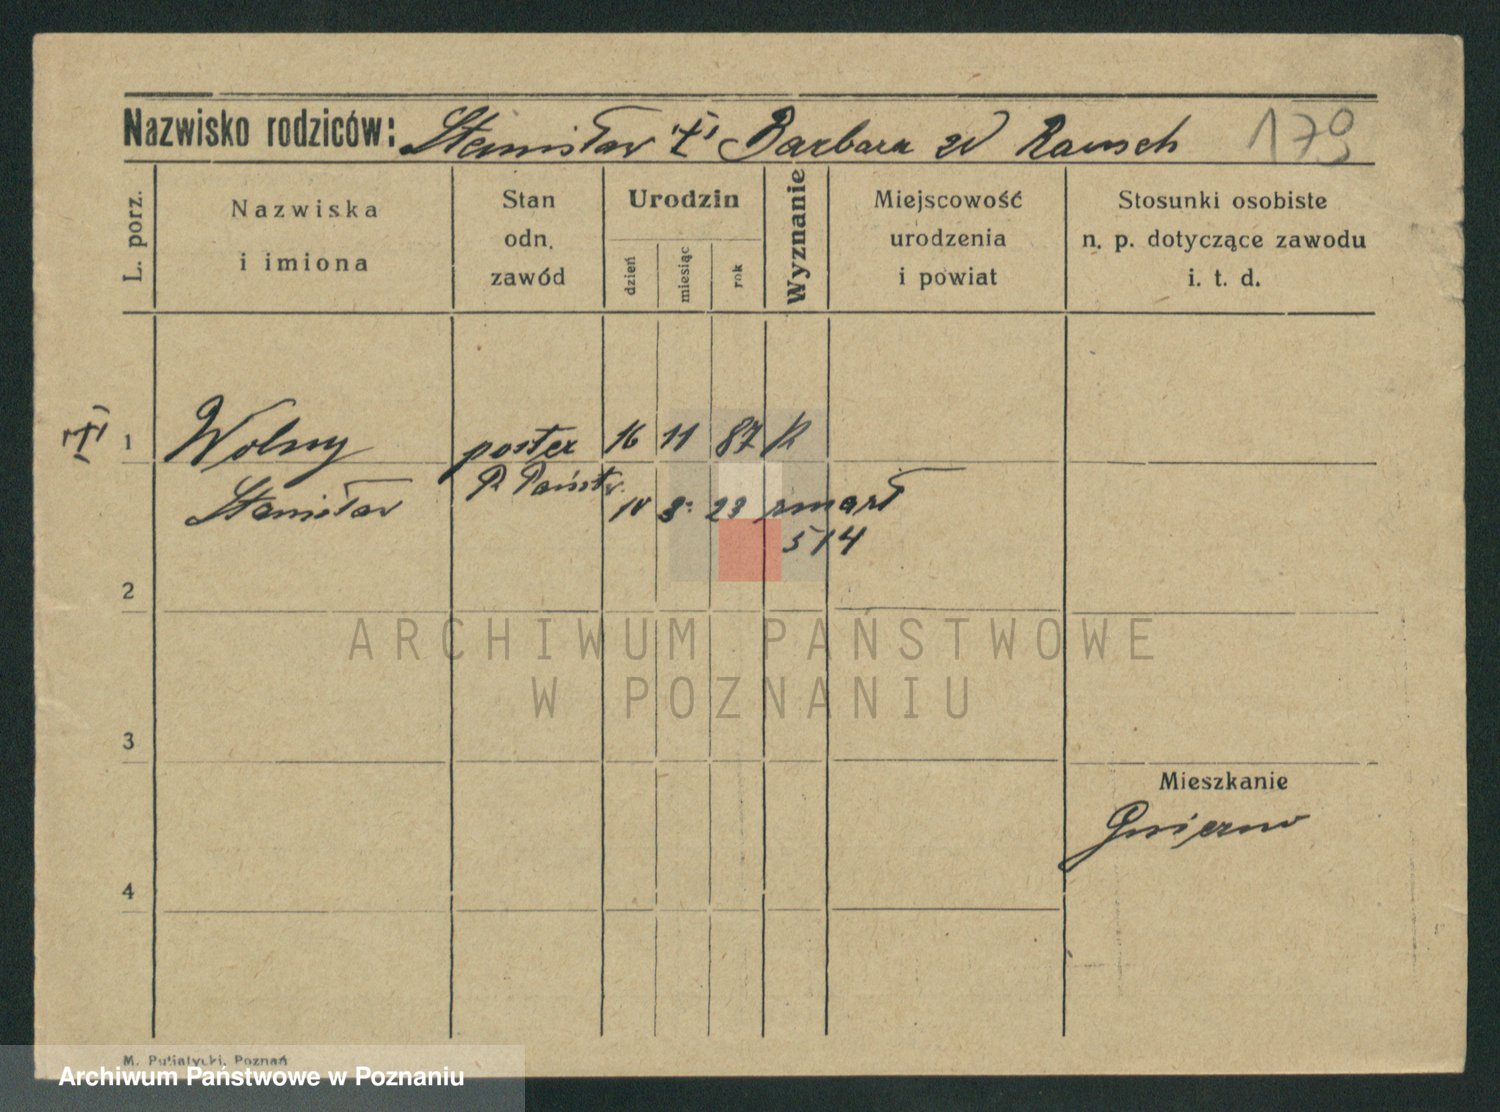 Nazwisko rodziców: Stanisław Barbara zd Rausch 179
L. porz.
Nazwiska
i imiona
Stan
odn.
zawód
Urodzin
dzień
miesiąc
rok
Wyznanie
Miejscowość
urodzenia
i powiat
Stosunki osobiste
n. p. dotyczące zawodu
i. t. d.
1 Wolny poster 16 11 87 k
Stanisław P. Państw. 8. 23 zmarł
514
2
ARCHIWUM PAŃSTWOWE
W POZNANIU
3
Mieszkanie
Gniezno
4
M. Putiatycki, Poznań
Archiwum Państwowe w Poznaniu